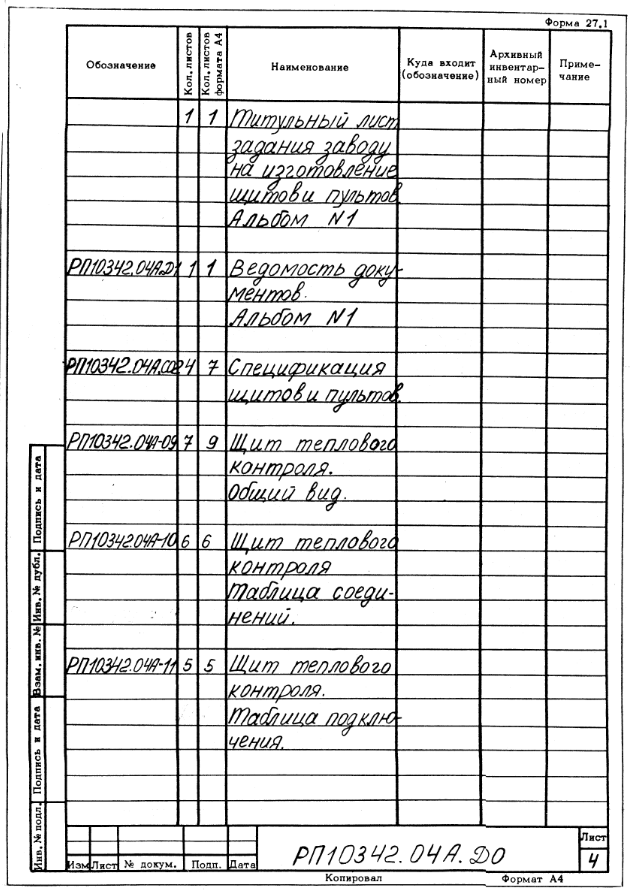 Форма 27.1
Обозначение
Кол. листов
Кол. листов
формата А4
Наименование
Куда входит
(обозначение)
Архивный
инвентар-
ный номер
Приме-
чание
1 1 Титульный лист
задания заводу
на изготовление
щитов и пультов
Альбом N1
РП10342.04А.Д1 1 1 Ведомость доку-
ментов.
Альбом N1
РП10342.04А.СО2 4 7 Спецификация
щитов и пультов.
РП10342.04А-09 7 9 Щит теплового
контроля.
Общий вид.
РП10342.04А-10 6 6 Щит теплового
контроля
Таблица соеди-
нений.
РП10342.04А-11 5 5 Щит теплового
контроля.
Таблица подклю-
чения.
Подпись и дата
Инв. № дубл.
Взам. инв. №
Подпись и дата
Инв. № подл.
Изм Лист № докум. Подп. Дата
РП10342.04А.ДО
Лист
4
Копировал
Формат А4